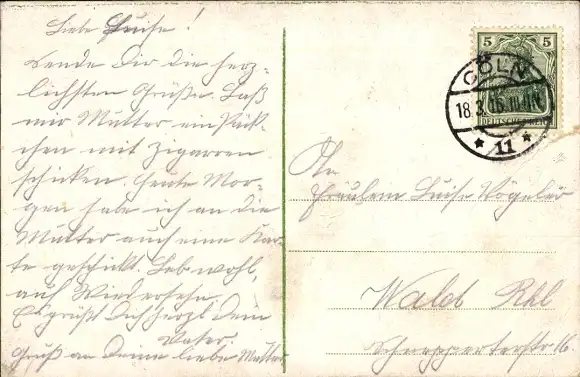 Liebe Luise!
Sende Dir die herz-
lichsten Grüße. Laß
mir Mutter ein Päck-
chen mit Zigarren
schicken. Heute Mor-
gen habe ich an die
Mutter auch eine Kar-
te geschickt. Leb wohl,
auf Wiedersehn.
Es grüßt Dich herzl. Dein
Vater.
Gruß an Deine liebe Mutter
5 5
DEUTSCHES REICH
CÖLN
18.3.
* 11 *
An
Fräulein Luise Vögeler
Wald Rhl
Schnepperterstr 16.